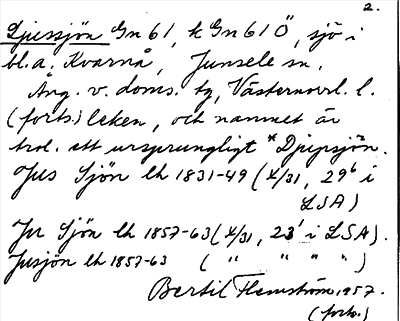 2.
Djussjön Gn 61, k Gn 61 Ö, sjö i
bl.a. Kvarnå, Junsele sn,
Ång. v. doms. tg, Västernorrl. l.
(forts.) leken, och namnet är
trol. att ursprungligt *Djupsjön.
Jus Sjön lh 1831-49 (X/31, 29⁶ i
LSA)
Ju Sjön lh 1857-63 (X/31, 23¹ i LSA).
Jusjön lh 1857-63 ( " " " " )
Bertil Flemström 1957.
(forts.)